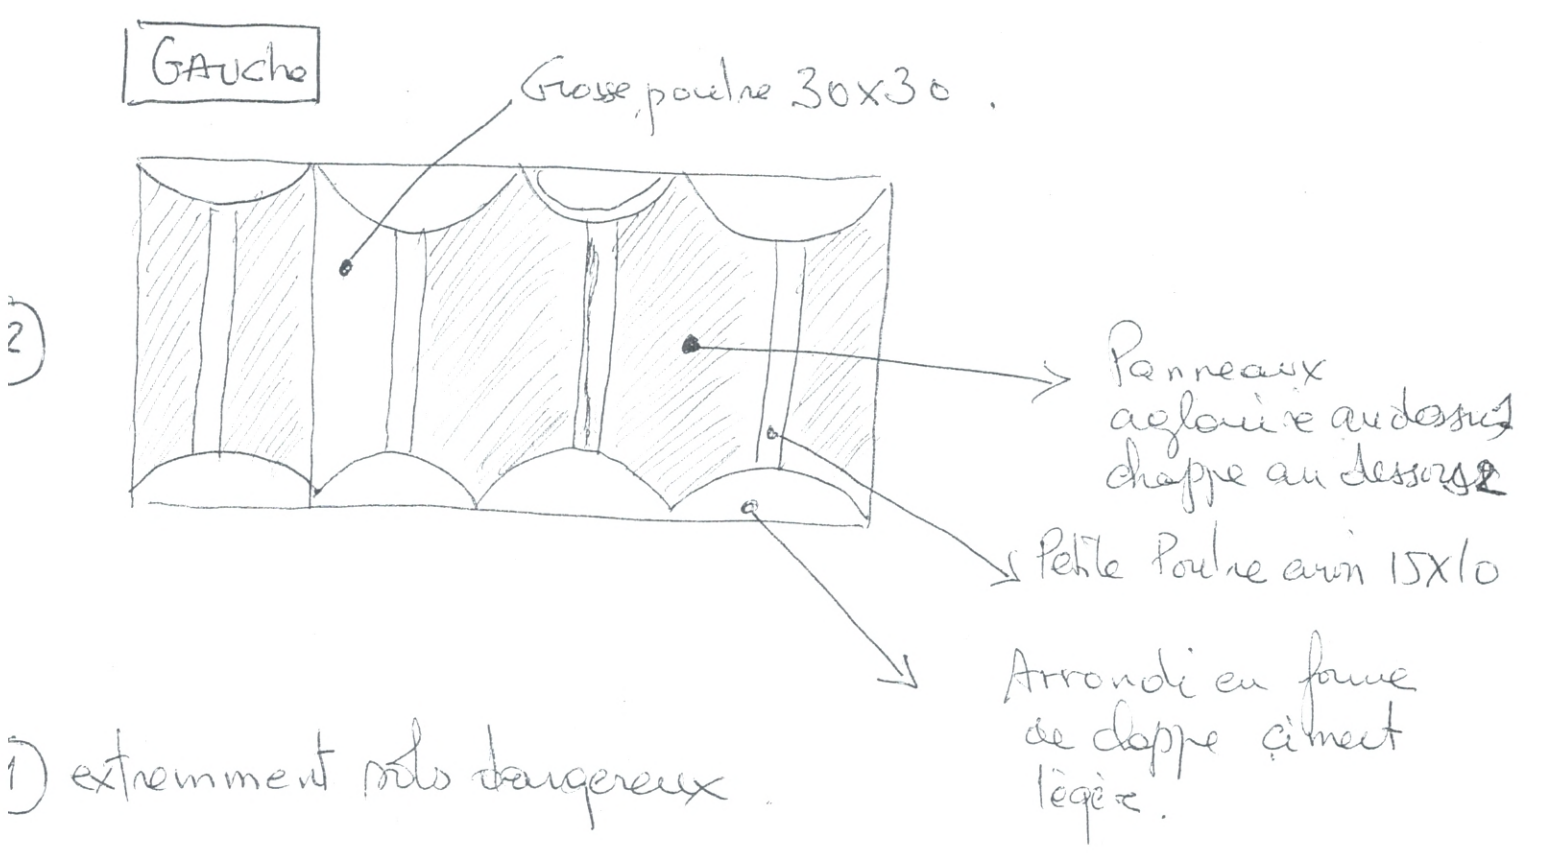 GAuche
Grosse poutre 30x30.
2
Panneaux
au dessus
chappe au dessous
Petite Poutre 15x10
Arrondi en forme
de clappe ciment
légère.
1) extremment dangereux.